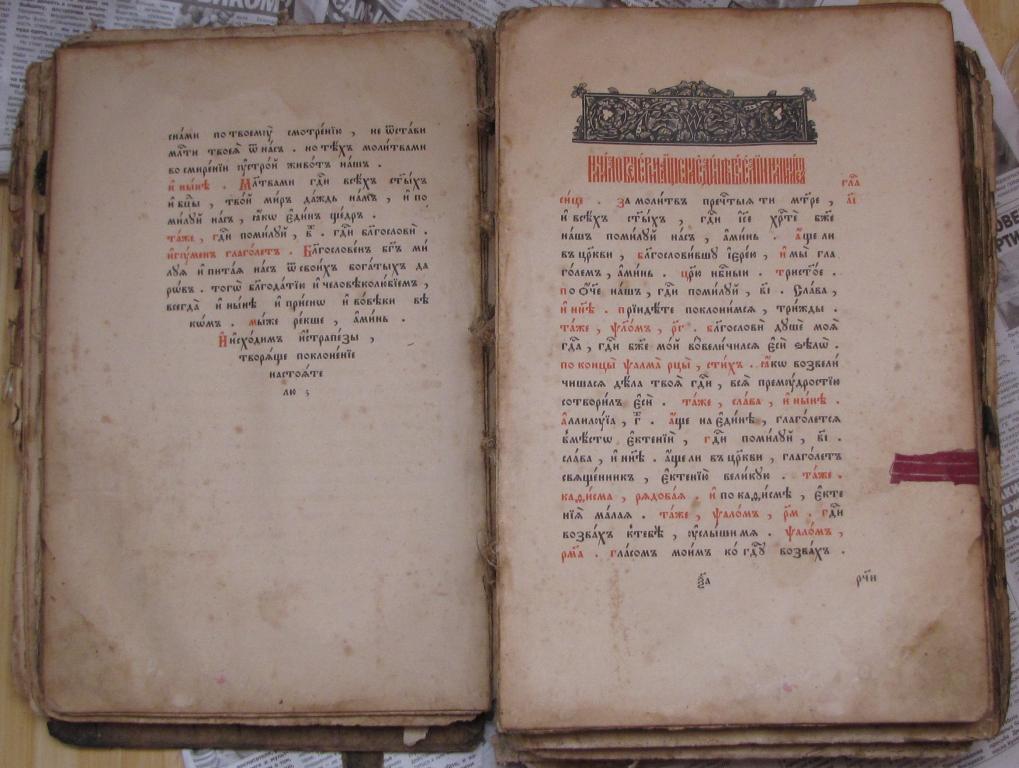 сꙋ́щими по твоемꙋ̀ смотре́нїю , не ѿста́ви
мл҃ти твоея̀ ѿ на́съ . но тѣ́хъ моли́твами
во смире́нїи ᲂу҆стро́й живо́тъ на́шъ .
и҆ ны́нѣ . Мл҃твами гд҇и всѣ́хъ ст҃ы́хъ
и҆ бц҃ы , тво́й ми́ръ да́ждь на́мъ , и҆ по
ми́луй на́съ , ꙗ҆́кѡ є҆ди́нъ ще́дръ .
та́же , гд҇и поми́луй , г҃ . гд҇и благословѝ .
и҆гꙋ́менъ глаго́летъ . Благослове́нъ бг҃ъ ми́
луя и҆ пита́я на́съ ѿ свои́хъ бога́тыхъ да
рѡ́въ . того̀ бл҃года́тїю и҆ человѣколю́бїемъ ,
всегда̀ и҆ ны́нѣ и҆ при́снѡ и҆ во́вѣки вѣ
ко́мъ . мы́же ре́кше , а҆ми́нь .
И҆ и҆схо́димъ и҆стра́пезы ,
творя́ще поклоне́нїе
настоя́те
лю ;
сице . За моли́твъ пречⷭ҇тыя ти мт҃ре ,
и҆ всѣ́хъ ст҃ы́хъ , гд҇и і҆с҃е хрⷭ҇тѐ бж҃е
на́шъ поми́луй на́съ , а҆ми́нь . а҆́ще ли
въ цр҃кви , благослови́вшу і҆ере́ю , и҆ мы̀ гла
го́лемъ , а҆ми́нь . цр҃ю нбⷭ҇ныи . трист҃о́е .
по ѻ҆́ч҃е на́шъ , гд҇и поми́луй , в҃і . Сла́ва ,
и҆ нн҃ѣ . прїиди́те поклони́мся , три́жды .
та́же , ѱало́мъ , р҃г . благословѝ душѐ моя̀
гд҇а , гд҇и бж҃е мо́й возвели́чился є҆сѝ ѕѣлѡ̀ .
по концы̀ ѱалма̀ рцы̀ , сти́хъ . ꙗ҆́кѡ возвели́
чишася дѣла̀ твоя̀ гд҇и , вся̀ премꙋ́дростїю
сотвори́лъ є҆сѝ . та́же , сла́ва , и҆ ны́нѣ .
а҆ллилꙋ́їа , г҃ . а҆́ще на є҆ди́нѣ , глаго́лется
вмѣ́сто є҆ктенїѝ , гд҇и поми́луй , в҃і .
сла́ва , и҆ нн҃ѣ . а҆́ще ли въ цр҃кви , глаго́летъ
свяще́нникъ , є҆ктенїю̀ вели́кую . та́же .
каѳи́сма , рядова́я . и҆ по каѳи́смѣ , є҆кте
нїя̀ ма́лая . та́же , ѱало́мъ , р҃м . гд҇и
воззва́хъ к тебѣ̀ , ᲂу҆слы́ши мя . ѱало́мъ ,
р҃ма . гла́сомъ мои́мъ ко гд҇у возва́хъ .
рч҃и